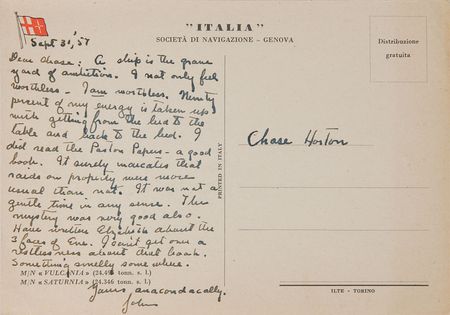 "ITALIA"
SOCIETÀ DI NAVIGAZIONE - GENOVA
Distribuzione
gratuita
Sept 31, '57
Dear Chase: A ship is the grave
yard of ambition. I not only feel
worthless - I am worthless. Ninety
percent of my energy is taken up
with getting from the bed to the
table and back to the bed. I
did read the Paston Papers - a good
book. It surely indicates that
raids on property were more
usual than not. It was not a
gentle time in any sense. The
mystery was very good also.
Have written Elizabeth about the
3 faces of Eve. I can't get over a
restlessness about that book.
Something smelly some where.
M/N « VULCANIA » (24.496 tonn. s. l.)
M/N « SATURNIA » (24.346 tonn. s. l.)
Yours anacondacally.
John
PRINTED IN ITALY
Chase Horton
ILTE - TORINO